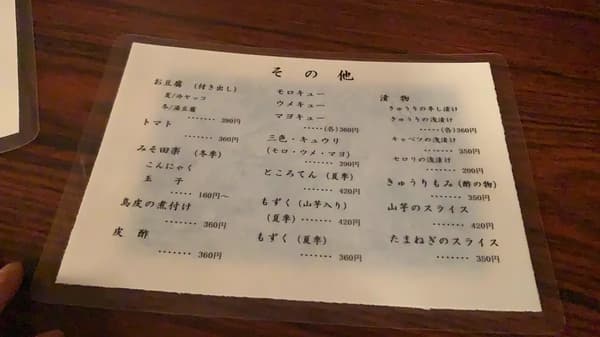 その他
お豆腐（付き出し）
夏/冷ヤッコ
冬/湯豆腐
……… 290円
トマト
……… 360円
みそ田楽（冬季）
こんにゃく
玉子
…… 160円〜
鳥皮の煮付け
……… 360円
皮酢
……… 360円
モロキュー
ウメキュー
マヨキュー
……(各)360円
三色・キュウリ
（モロ・ウメ・マヨ）
……… 390円
ところてん（夏季）
……… 420円
もずく（山芋入り）
（夏季）……… 420円
もずく（夏季）
……… 360円
漬物
きゅうりの辛し漬け
きゅうりの浅漬け
……(各)360円
キャベツの浅漬け
……… 350円
セロリの浅漬け
……… 290円
きゅうりもみ（酢の物）
……… 350円
山芋のスライス
……… 420円
たまねぎのスライス
……… 350円